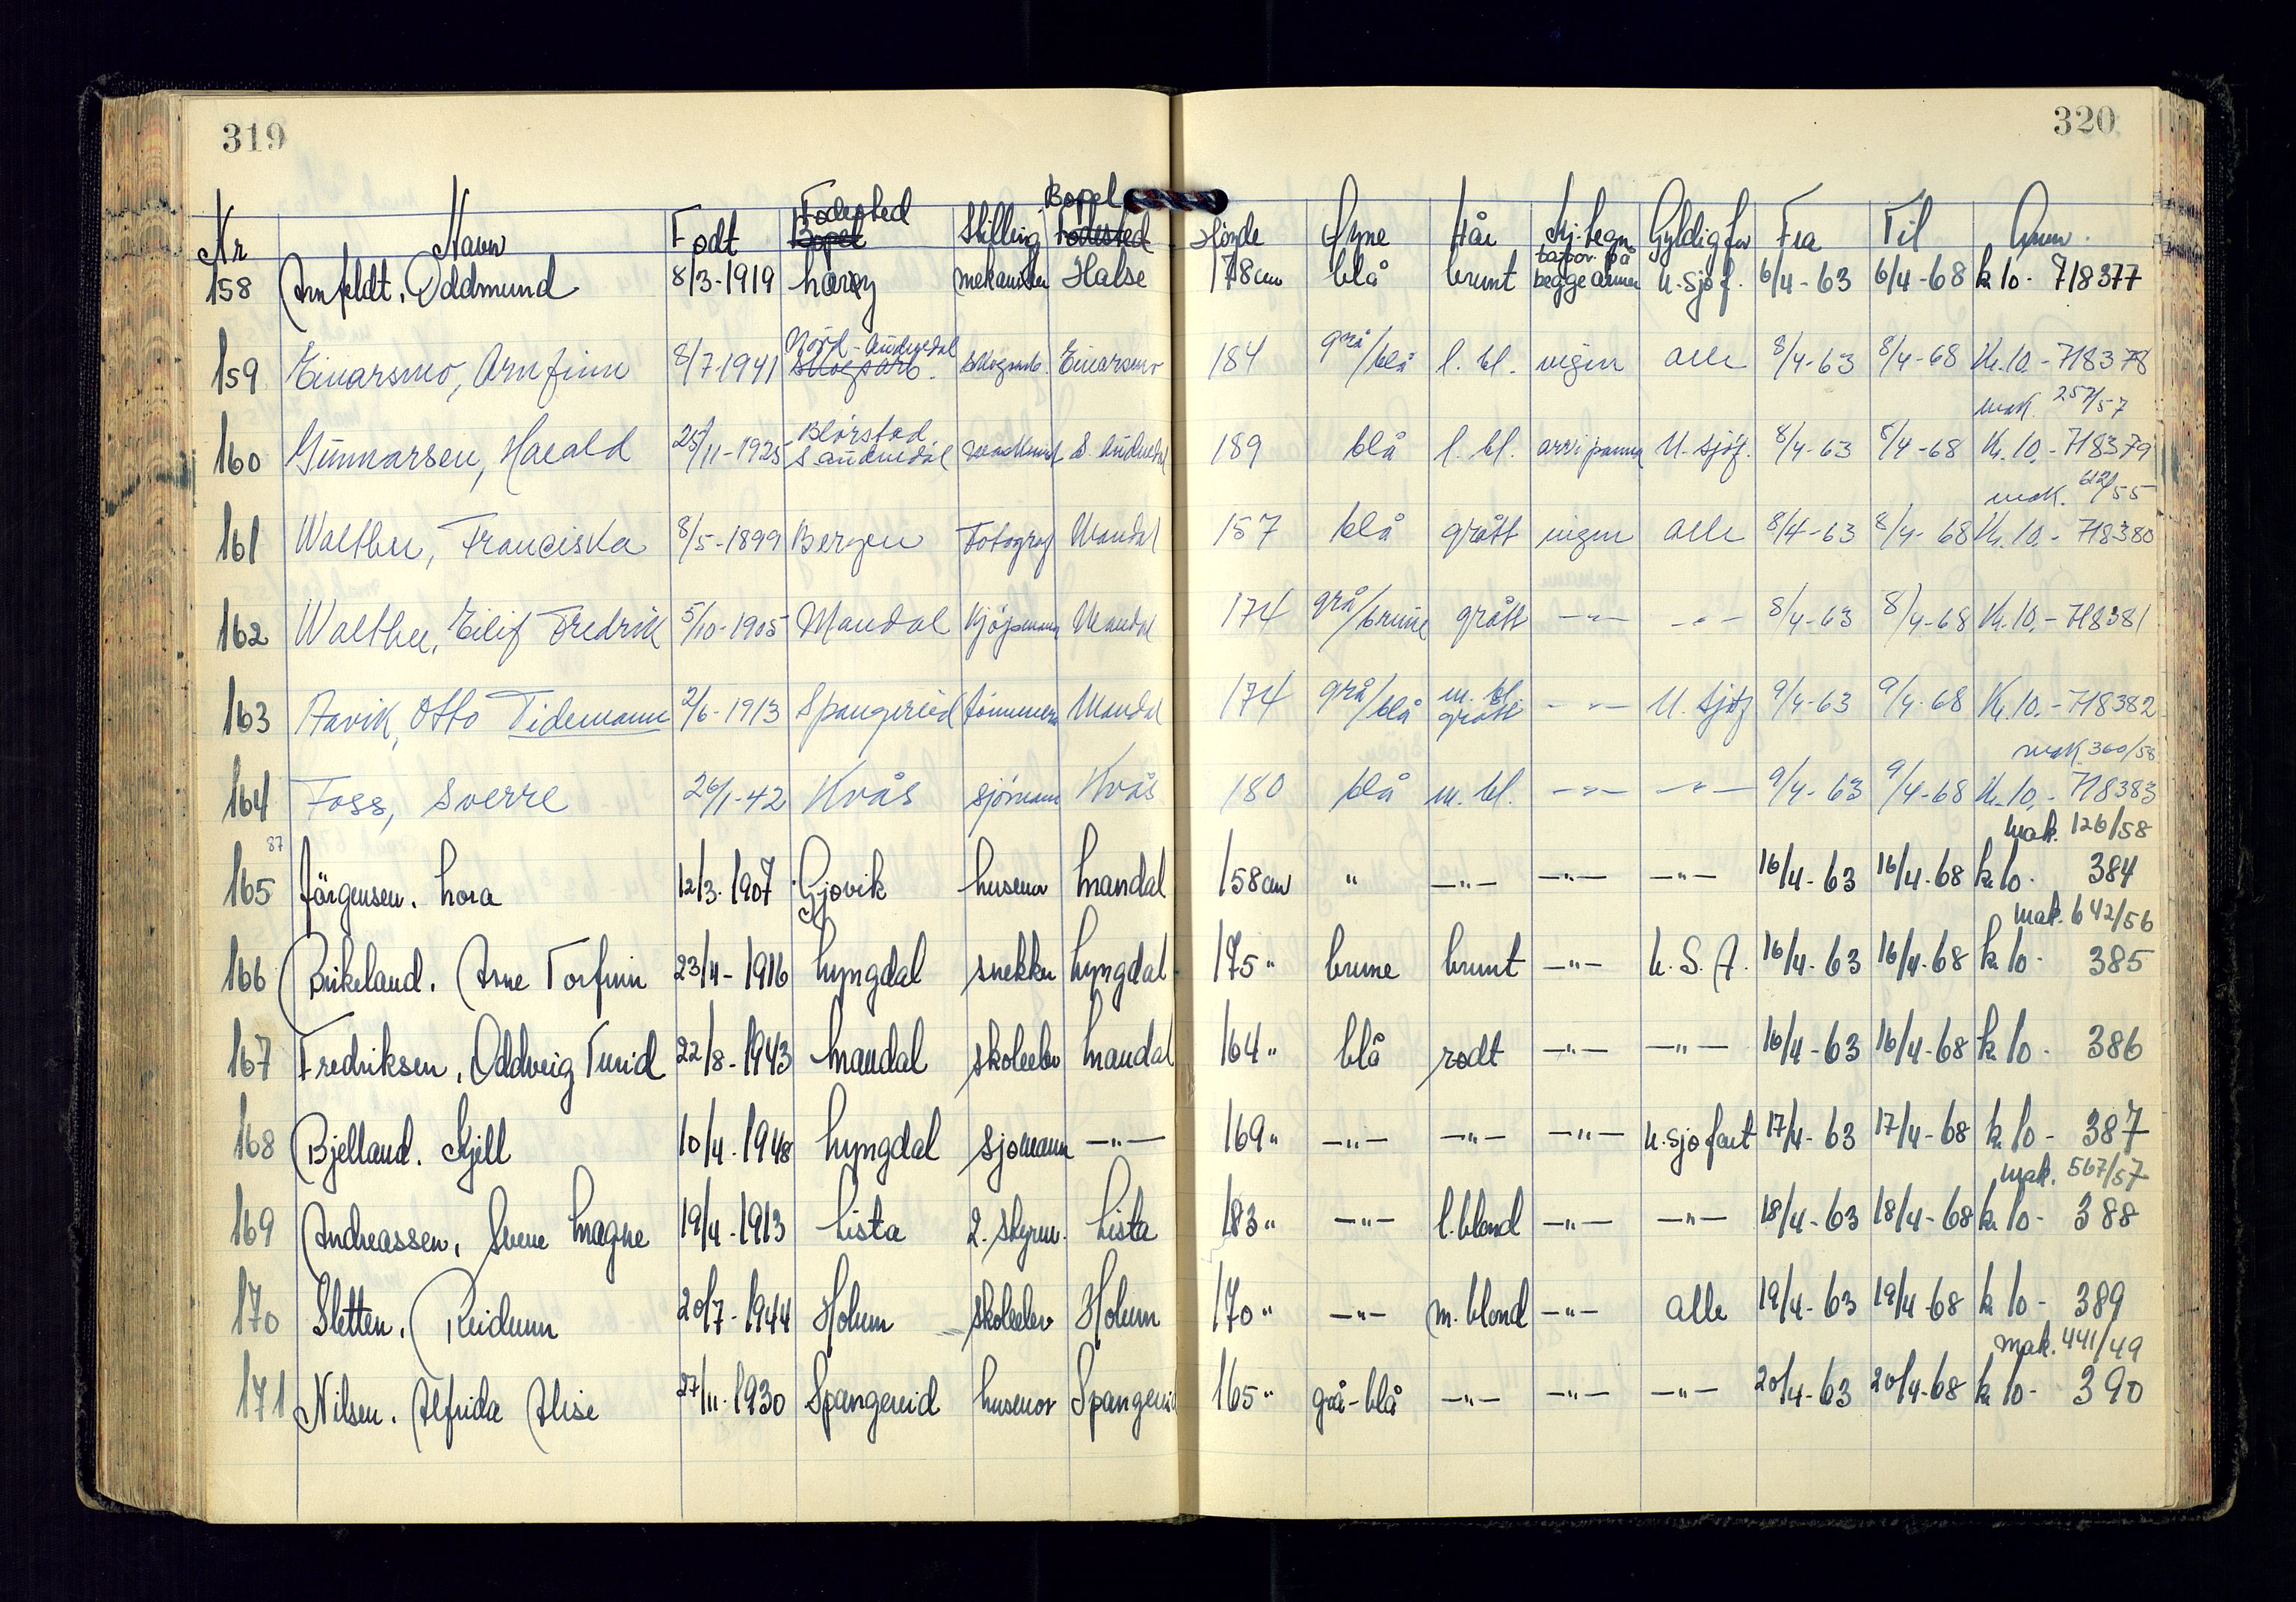 319
320
Nr Navn Født Fødested Bopel Stilling Bopel Fødested Høyde Øyne Hår Kj.tegn Gyldig for Fra Til Anm.
158 Arnfeldt, Oddmund 8/3-1919 mekaniker Halse 178cm blå brunt tatov. på begge armer u. sjøf. 6/4-63 6/4-68 kr 10- 718377
159 Einarsmo, Arnfinn 8/7-1941 Nord-Audnedal skogsarb. skogsarb. Einarsmo 184 grå/blå l. bl. ingen alle 8/4-63 8/4-68 Kr. 10.- 718378
mak. 257/57
160 Gunnarsen, Harald 25/11-1925 S. Audnedal maskinist S. Audnedal 189 blå l. bl. arr i panna U. sjøf. 8/4-63 8/4-68 Kr. 10.- 718379
mak. 612/55
161 Walther, Franciska 8/5-1899 Bergen Fotograf Mandal 157 blå grått ingen alle 8/4-63 8/4-68 Kr. 10.- 718380
162 Walther, Eilif Fredrik 5/10-1905 Mandal Kjøpmann Mandal 174 grå/brune grått -"- -"- 8/4-63 8/4-68 Kr. 10.- 718381
163 Aavik, Otto Tidemann 2/6-1913 Spangereid tømmerm. Mandal 174 grå/blå m. bl. grått -"- U. sjøf 9/4-63 9/4-68 Kr. 10.- 718382
mak. 360/58
164 Foss, Sverre 26/1-42 Kvås sjømann Kvås 180 blå m. bl. -"- -"- 9/4-63 9/4-68 Kr. 10.- 718383
mak. 126/58
87
165 Jørgensen, Lora 12/3-1907 Gjøvik husmor Mandal 158cm " -"- -"- -"- 16/4-63 16/4-68 kr 10- 384
mak. 642/56
166 Birkeland, Arne Torfinn 23/4-1916 Lyngdal snekker Lyngdal 175" brune brunt -"- U.S.A. 16/4-63 16/4-68 kr 10- 385
167 Fredriksen, Oddveig Turid 22/8-1943 Mandal skoleelev Mandal 164" blå rødt -"- -"- 16/4-63 16/4-68 kr 10- 386
168 Bjelland, Kjell 10/4-1948 Lyngdal sjømann -"- 169" -"- -"- -"- u. sjøfart 17/4-63 17/4-68 kr 10- 387
mak. 567/57
169 Andreassen, Svene Magne 19/4-1913 Lista 2. styrm. Lista 183" -"- l. blond -"- -"- 18/4-63 18/4-68 kr 10- 388
170 Sletten, Reidunn 20/7-1944 Holum skoleelev Holum 170" -"- m. blond -"- alle 19/4-63 19/4-68 kr 10- 389
mak. 441/49
171 Nilsen, Alfrida Alise 27/11-1930 Spangereid husmor Spangereid 165" grå-blå -"- -"- -"- 20/4-63 20/4-68 kr 10- 390